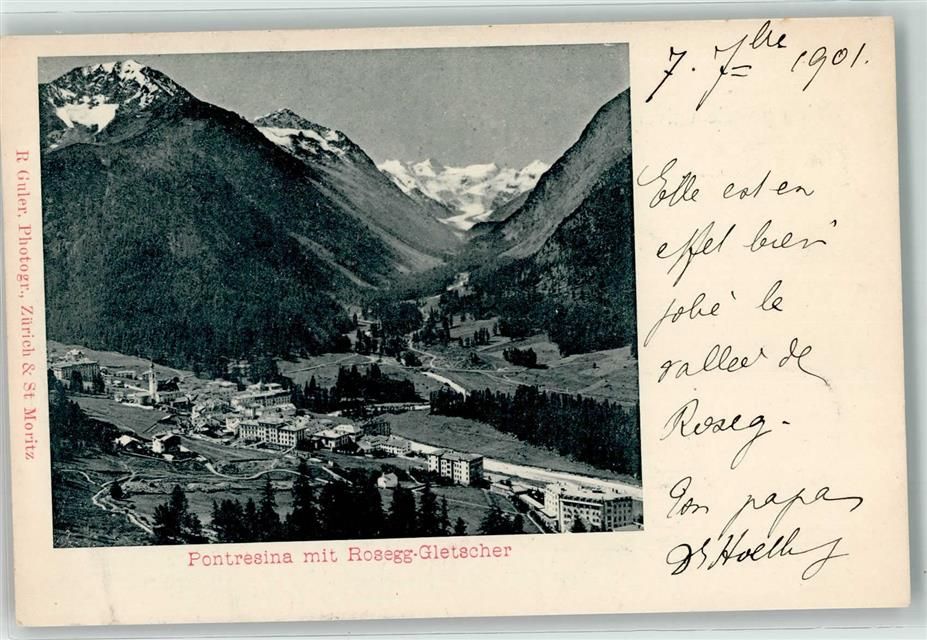 7. 7bre 1901.
Elle est en
effet bien
jolie la
vallée de
Roseg.
Ton papa
Dr Hoelly
Pontresina mit Rosegg-Gletscher
R Guler, Photogr., Zürich & St Moritz